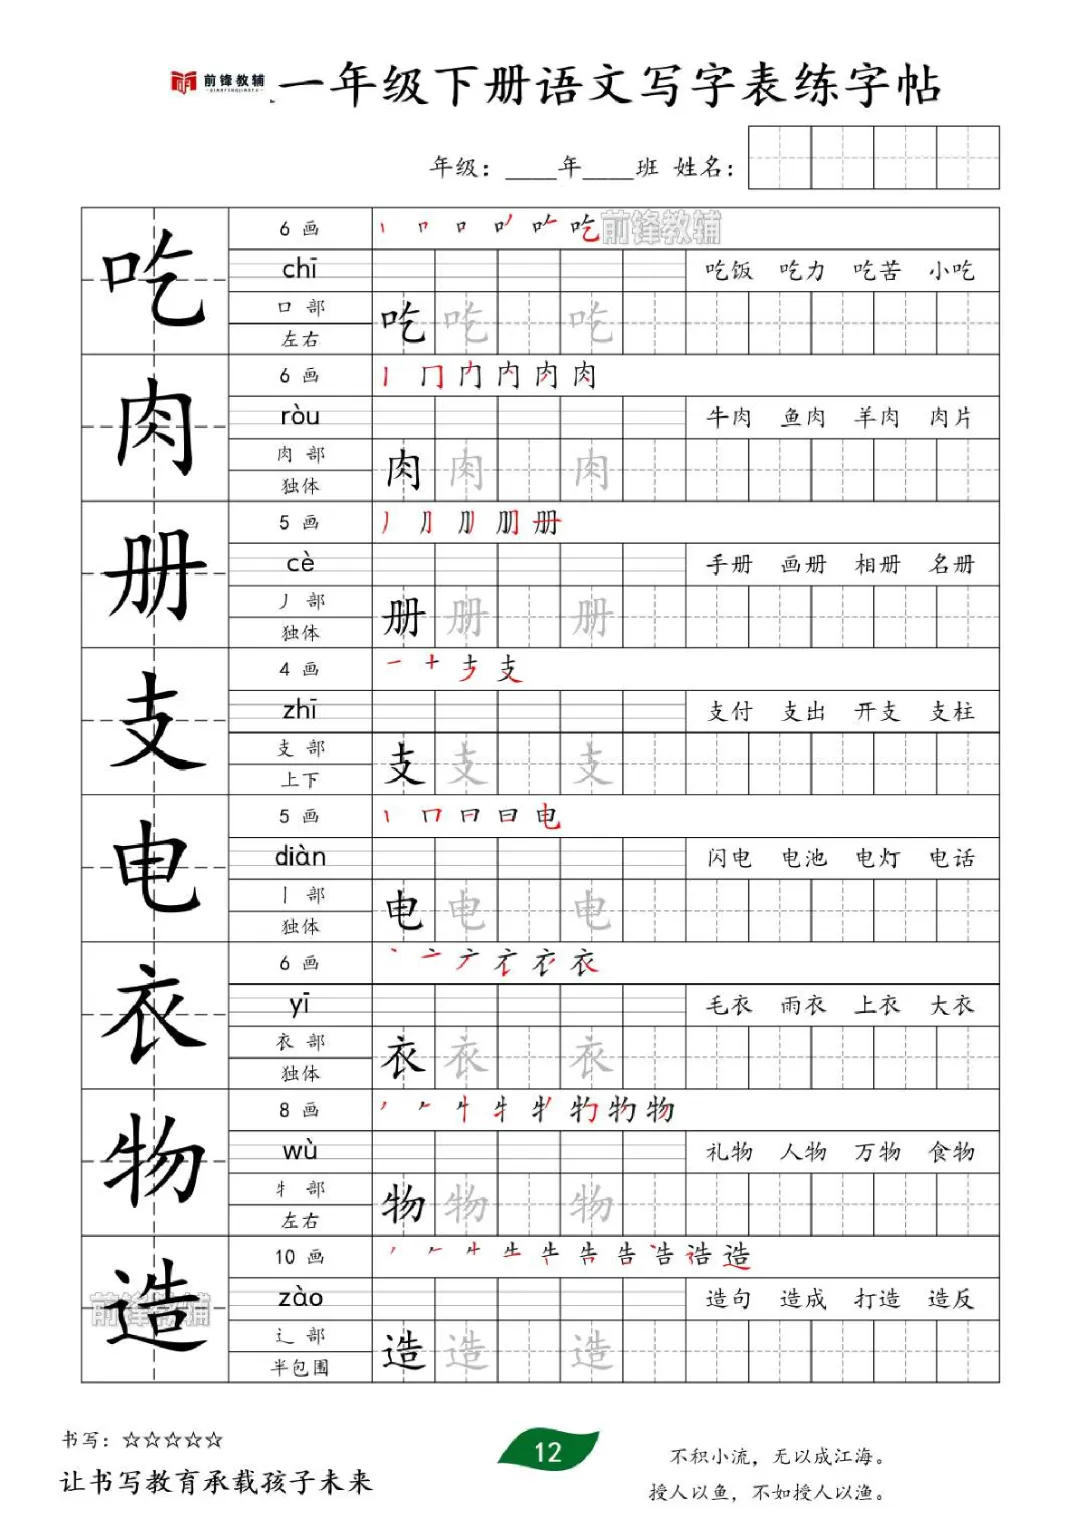 前锋教辅
QIANFENGJIAOFU
一年级下册语文写字表练字帖
年级：____年____班 姓名：
吃
6 画
丨 吃 前锋教辅
chī
吃饭 吃力 吃苦 小吃
口 部
吃 吃 吃
左右
肉
6 画
丨 冂 内 肉
ròu
牛肉 鱼肉 羊肉 肉片
肉 部
肉 肉 肉
独体
册
5 画
丿 册
cè
手册 画册 相册 名册
丿 部
册 册 册
独体
支
4 画
一 十 支
zhī
支付 支出 开支 支柱
支 部
支 支 支
上下
电
5 画
丨 冂 日 电
diàn
闪电 电池 电灯 电话
丨 部
电 电 电
独体
衣
6 画
丶 亠 衣
yī
毛衣 雨衣 上衣 大衣
衣 部
衣 衣 衣
独体
物
8 画
丿 牜 物
wù
礼物 人物 万物 食物
牜 部
物 物 物
左右
造
10 画
丿 告 造
zào
造句 造成 打造 造反
前锋教辅
辶 部
造 造 造
半包围
书写：☆☆☆☆☆
让书写教育承载孩子未来
12
不积小流，无以成江海。
授人以鱼，不如授人以渔。